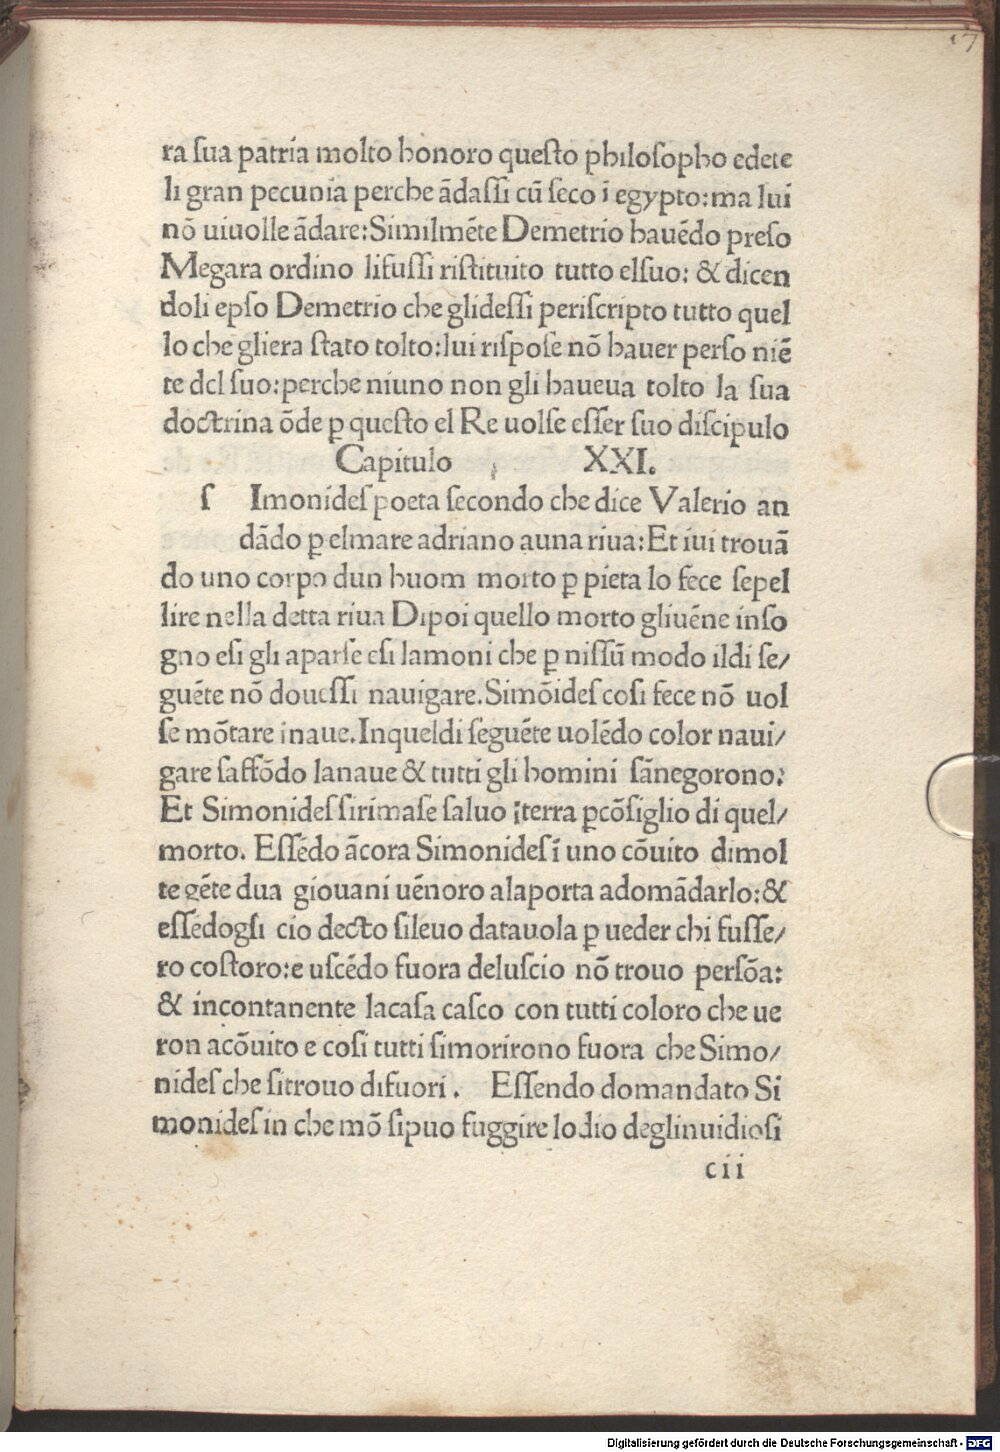 17
ra sua patria molto honoro questo philosopho edete
li gran pecunia perche ādassi cū seco ī egypto:ma lui
nō uiuolle ādare:Similmēte Demetrio hauēdo preso
Megara ordino lifussi ristituito tutto elsuo: & dicen
doli epso Demetrio che glidessi periscripto tutto quel
lo che gliera stato tolto:lui rispose nō hauer perso niē
te del suo:perche niuno non gli haueua tolto la sua
doctrina ōde ꝑ questo el Re uolse esser suo discipulo
Capitulo XXI.
s Imonides poeta secondo che dice Valerio an
dādo ꝑ elmare adriano auna riua:Et iui trouā
do uno corpo dun huom morto ꝑ pieta lo fece sepel
lire nella detta riua Dipoi quello morto gliuēne inso
gno esi gli aparse esi lamoni che ꝑ nissū modo ildi se/
guēte nō douessi nauigare.Simōides cosi fece nō uol
se mōtare inaue.Inqueldi seguēte uolēdo color naui/
gare saffōdo lanaue & tutti gli homini sānegorono:
Et Simonides sirimase saluo īterra ꝑcōsiglio di quel/
morto. Essēdo ācora Simonides ī uno cōuito dimol
te gēte dua giouani uēnoro alaporta adomādarlo:&
essēdogsi cio decto sileuo datauola ꝑ ueder chi fusse/
ro costoro:e uscēdo fuora deluscio nō trouo persōa:
& incontanente lacasa casco con tutti coloro che ue
ron acōuito e cosi tutti simorirono fuora che Simo/
nides che sitrouo difuori. Essendo domandato Si
monides in che mō sipuo fuggire lodio deglinuidiosi
cii
Digitalisierung gefördert durch die Deutsche Forschungsgemeinschaft - DFG